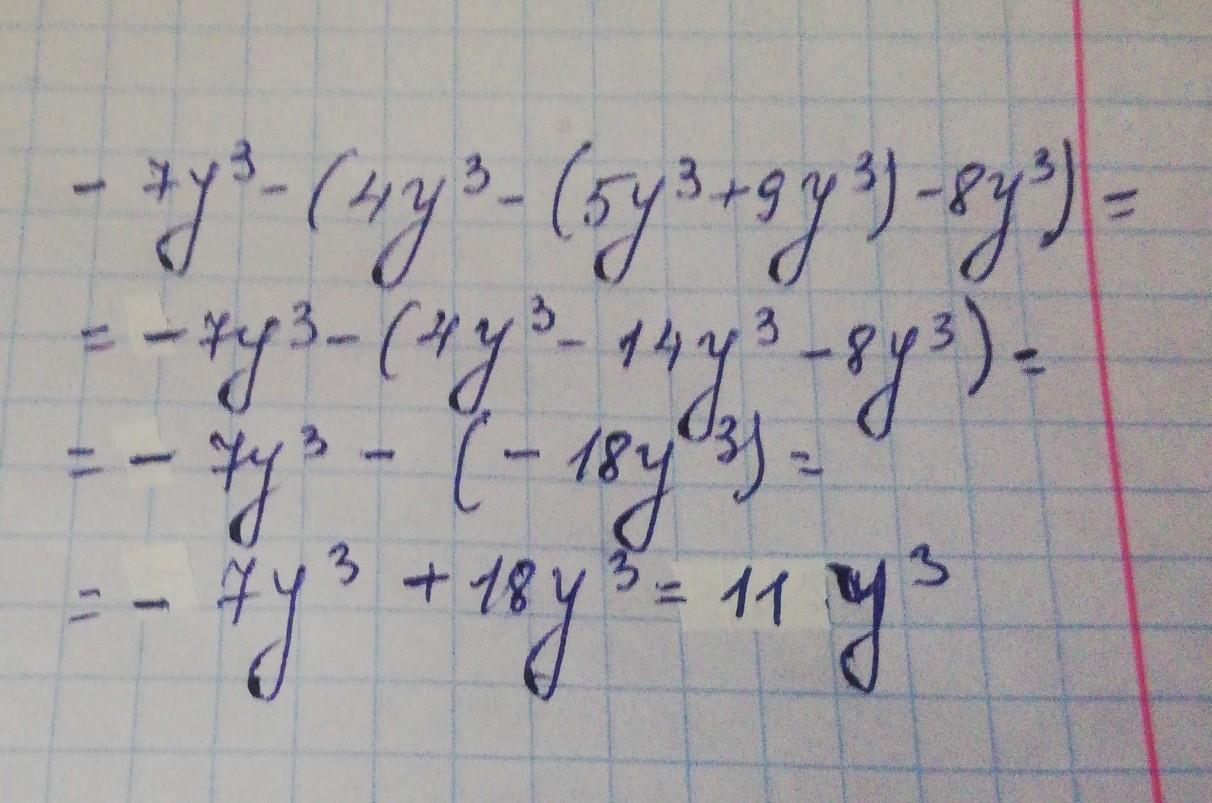 - 7y³ - (4y³ - (5y³ + 9y³) - 8y³) =
= - 7y³ - (4y³ - 14y³ - 8y³) =
= - 7y³ - (- 18y³) =
= - 7y³ + 18y³ = 11 y³